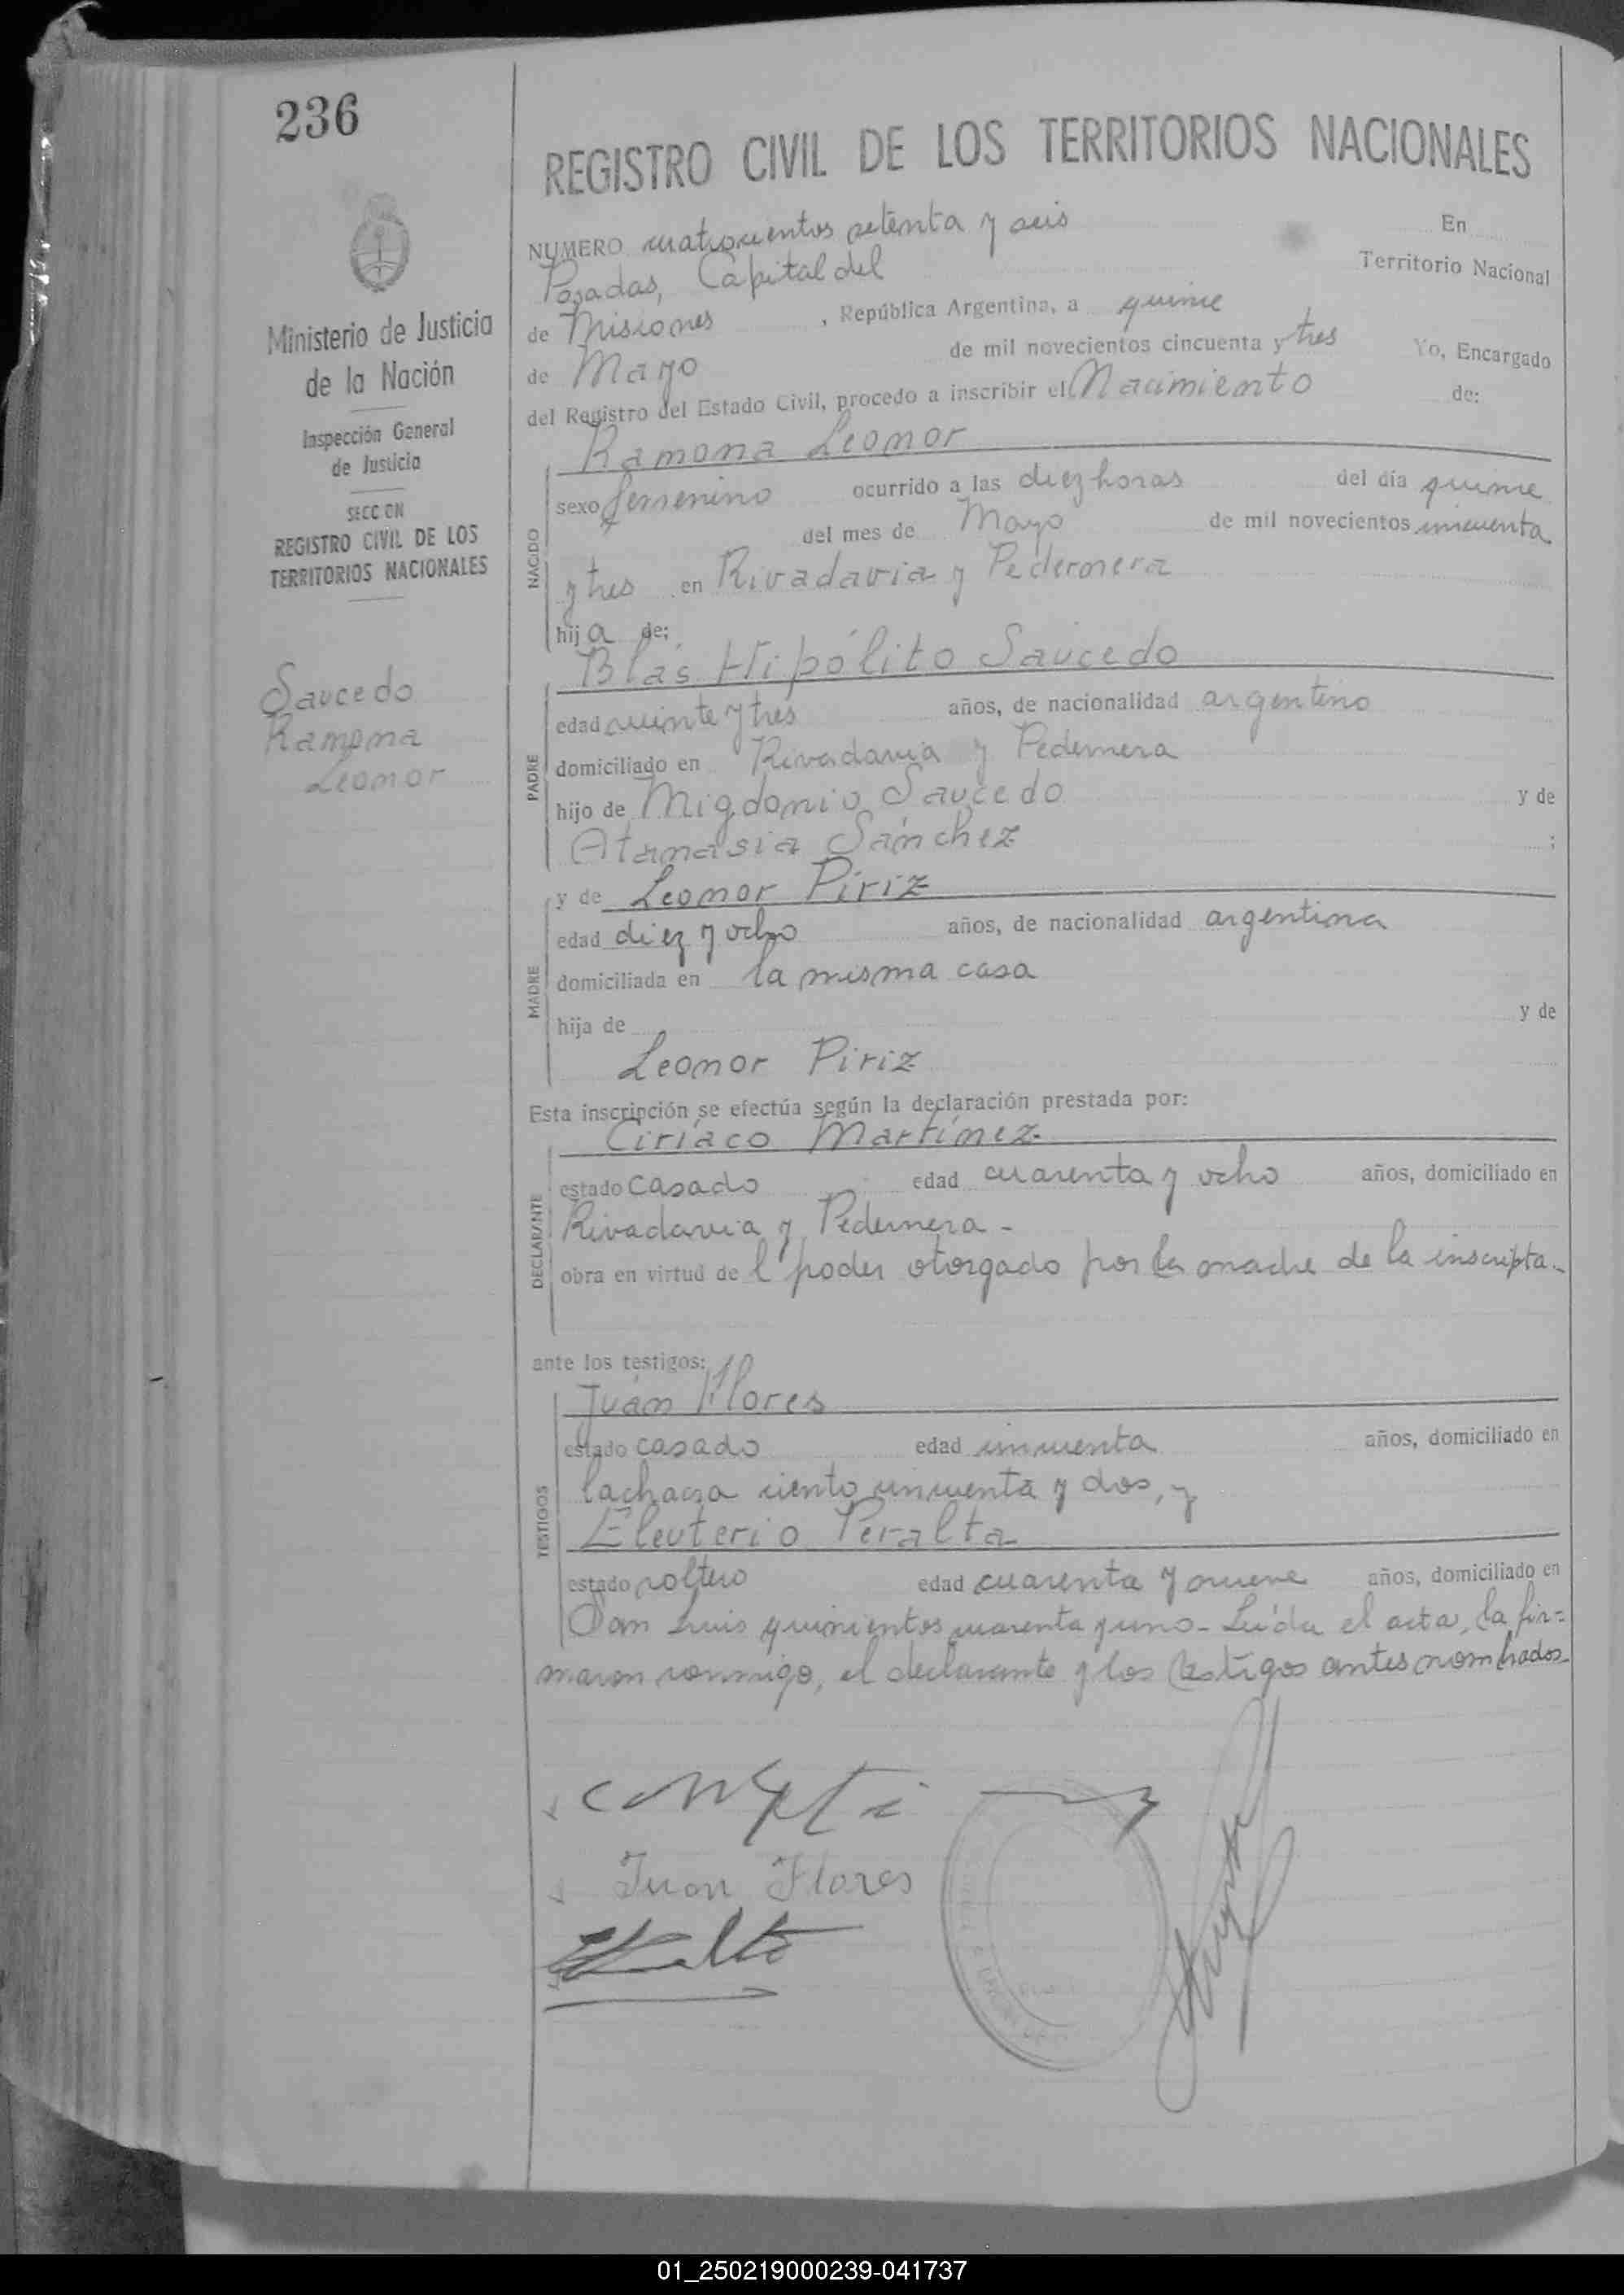 236
REGISTRO CIVIL DE LOS TERRITORIOS NACIONALES
NUMERO cuatrocientos setenta y seis En
Posadas, Capital del Territorio Nacional
de Misiones, República Argentina, a quince
de Mayo de mil novecientos cincuenta y tres Yo, Encargado
del Registro del Estado Civil, procedo a inscribir el Nacimiento de:
Ramona Leonor
sexo femenino ocurrido a las diez horas del día quince
del mes de Mayo de mil novecientos cincuenta
y tres en Rivadavia y Pedernera
hija de:
NACIDO
Blás Hipólito Saucedo
edad veinte y tres años, de nacionalidad argentino
domiciliado en Rivadavia y Pedernera
hijo de Migdonio Saucedo y de
Atanasia Sánchez ;
PADRE
y de Leonor Píriz
edad diez y ocho años, de nacionalidad argentina
domiciliada en la misma casa
hija de y de
Leonor Piriz
MADRE
Esta inscripción se efectúa según la declaración prestada por:
Ciríaco Martínez
estado casado edad cuarenta y ocho años, domiciliado en
Rivadavia y Pedernera -
obra en virtud del poder otorgado por la madre de la inscripta.-
DECLARANTE
ante los testigos:
Juán Flores
estado casado edad cincuenta años, domiciliado en
ciento cincuenta y dos, y
Eleuterio Peralta
estado soltero edad cuarenta y nueve años, domiciliado en
San Luis quinientos cuarenta y uno - Leída el acta, la fir=
maron conmigo, el declarante y los testigos antes nombrados-
TESTIGOS
Juan Flores
Ministerio de Justicia
de la Nación
Inspección General
de Justicia
SECCION
REGISTRO CIVIL DE LOS
TERRITORIOS NACIONALES
Saucedo
Ramona
Leonor
01_250219000239-041737